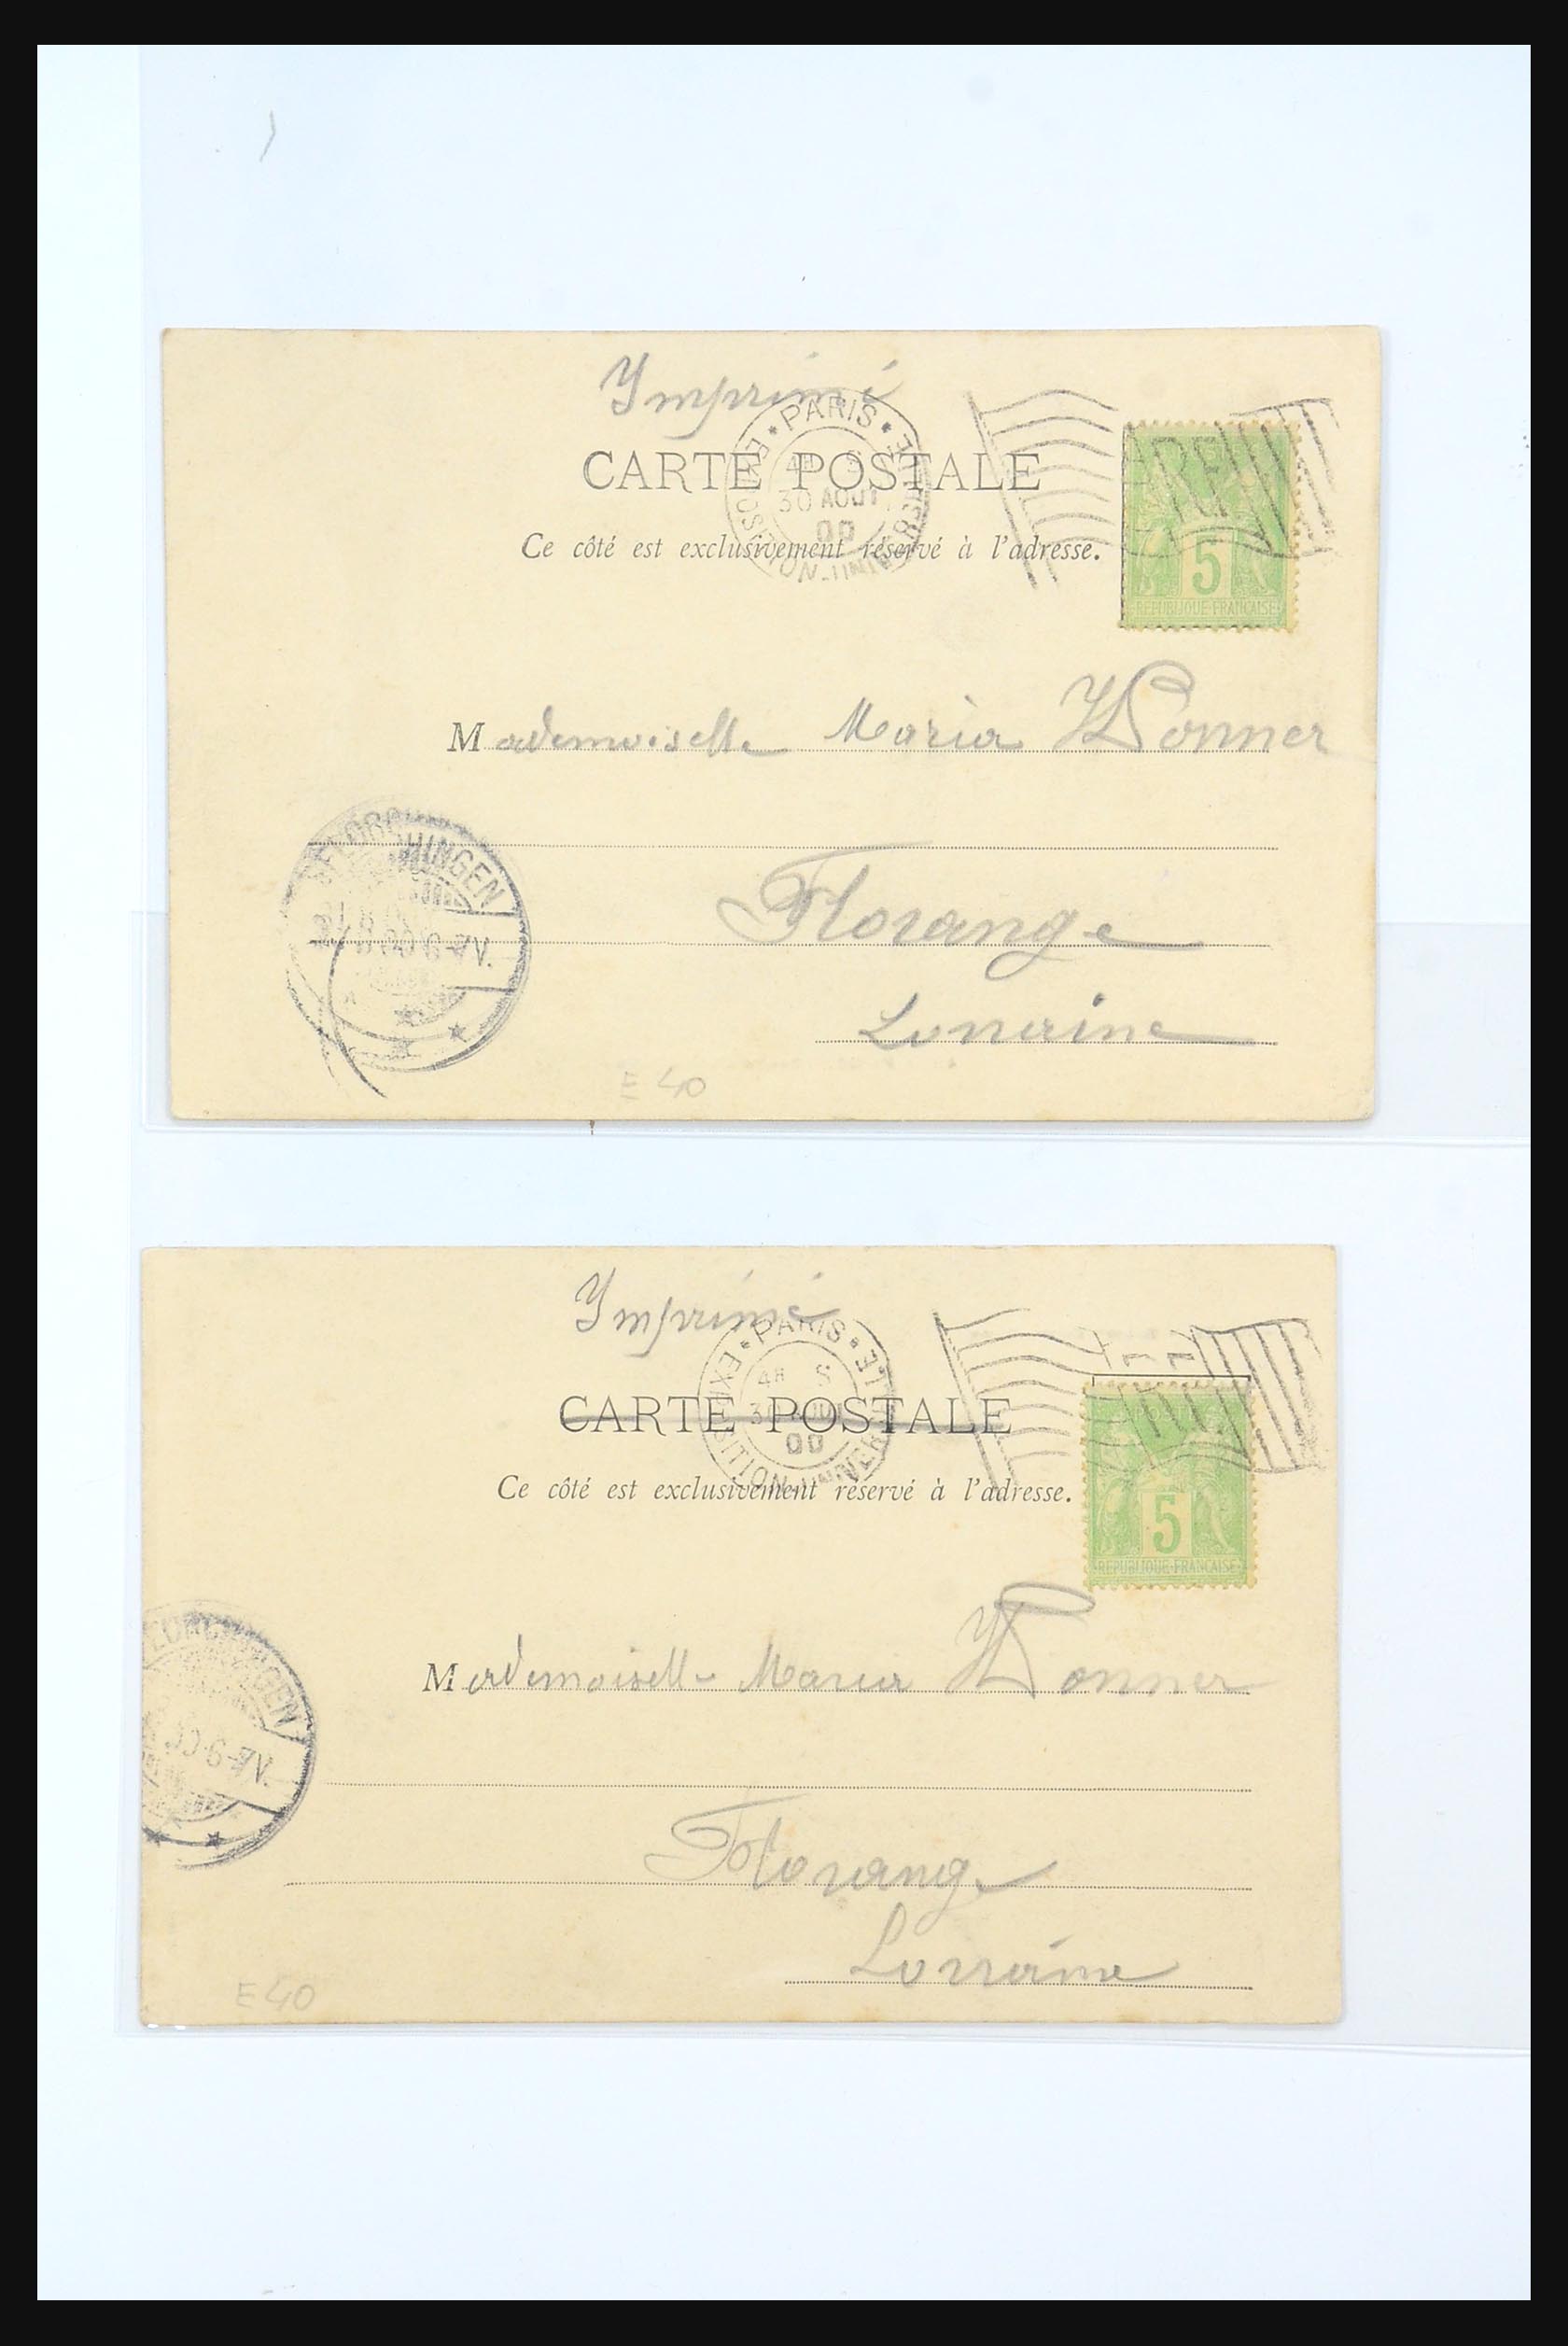 Imprimé
PARIS
EXPOSITION-UNIVERSELLE
30 AOUT
00
CARTE POSTALE
Ce côté est exclusivement réservé à l'adresse.
RF
5
REPUBLIQUE FRANÇAISE
Mademoiselle Maria Wonner
FLORCHINGEN
Florange
Lorraine
E 40
Imprimé
PARIS
EXPOSITION-UNIVERSELLE
4H S
30 AOUT
00
CARTE POSTALE
Ce côté est exclusivement réservé à l'adresse.
RF
5
REPUBLIQUE FRANÇAISE
Mademoiselle Maria Wonner
FLORCHINGEN
Florange
Lorraine
E 40